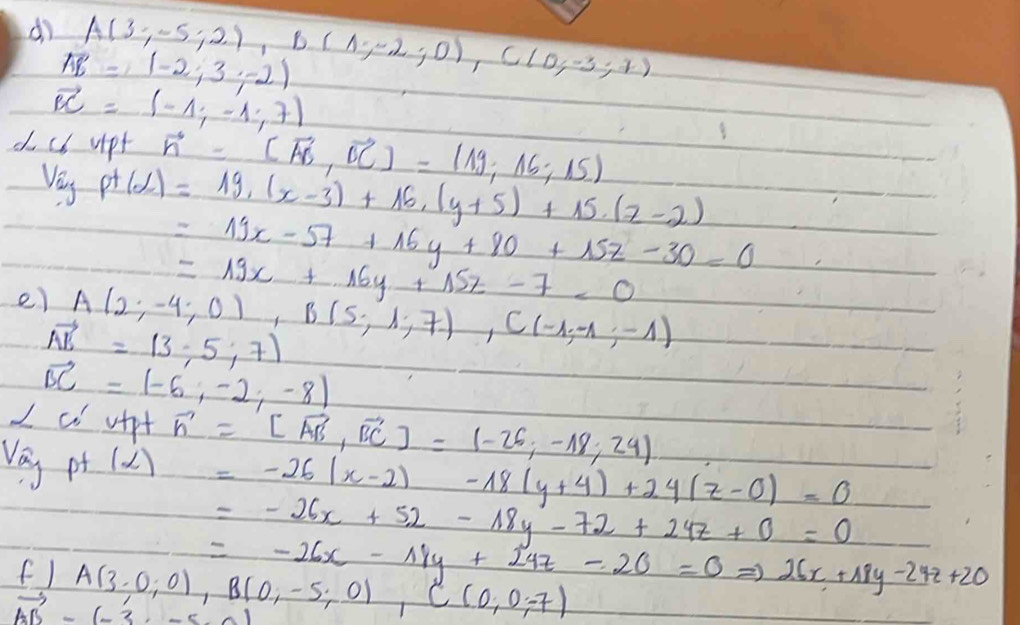 d) A(3;-5;2), B(1;-2;0), C(0;-3;7)
AB = (-2;3;-2)
BC = (-1;-1;7)
α có vtpt n = [AB, BC] = (19; 16; 15)
Vậy pt(α) = 19.(x-3) + 16.(y+5) + 15.(z-2)
= 19x - 57 + 16y + 80 + 15z - 30 = 0
= 19x + 16y + 15z - 7 = 0
e) A(2;-4;0), B(5;1;7), C(-1;-1;-1)
AB = (3;5;7)
BC = (-6;-2;-8)
α có vtpt n = [AB, BC] = (-26; -18; 24)
Vậy pt (α) = -26(x-2) -18(y+4) +24(z-0) = 0
= -26x + 52 - 18y - 72 + 24z + 0 = 0
= -26x - 18y + 24z - 20 = 0 => 26x + 18y - 24z + 20
f) A(3;0;0), B(0;-5;0), C(0;0;-7)
AB = (-3; -5; 0)